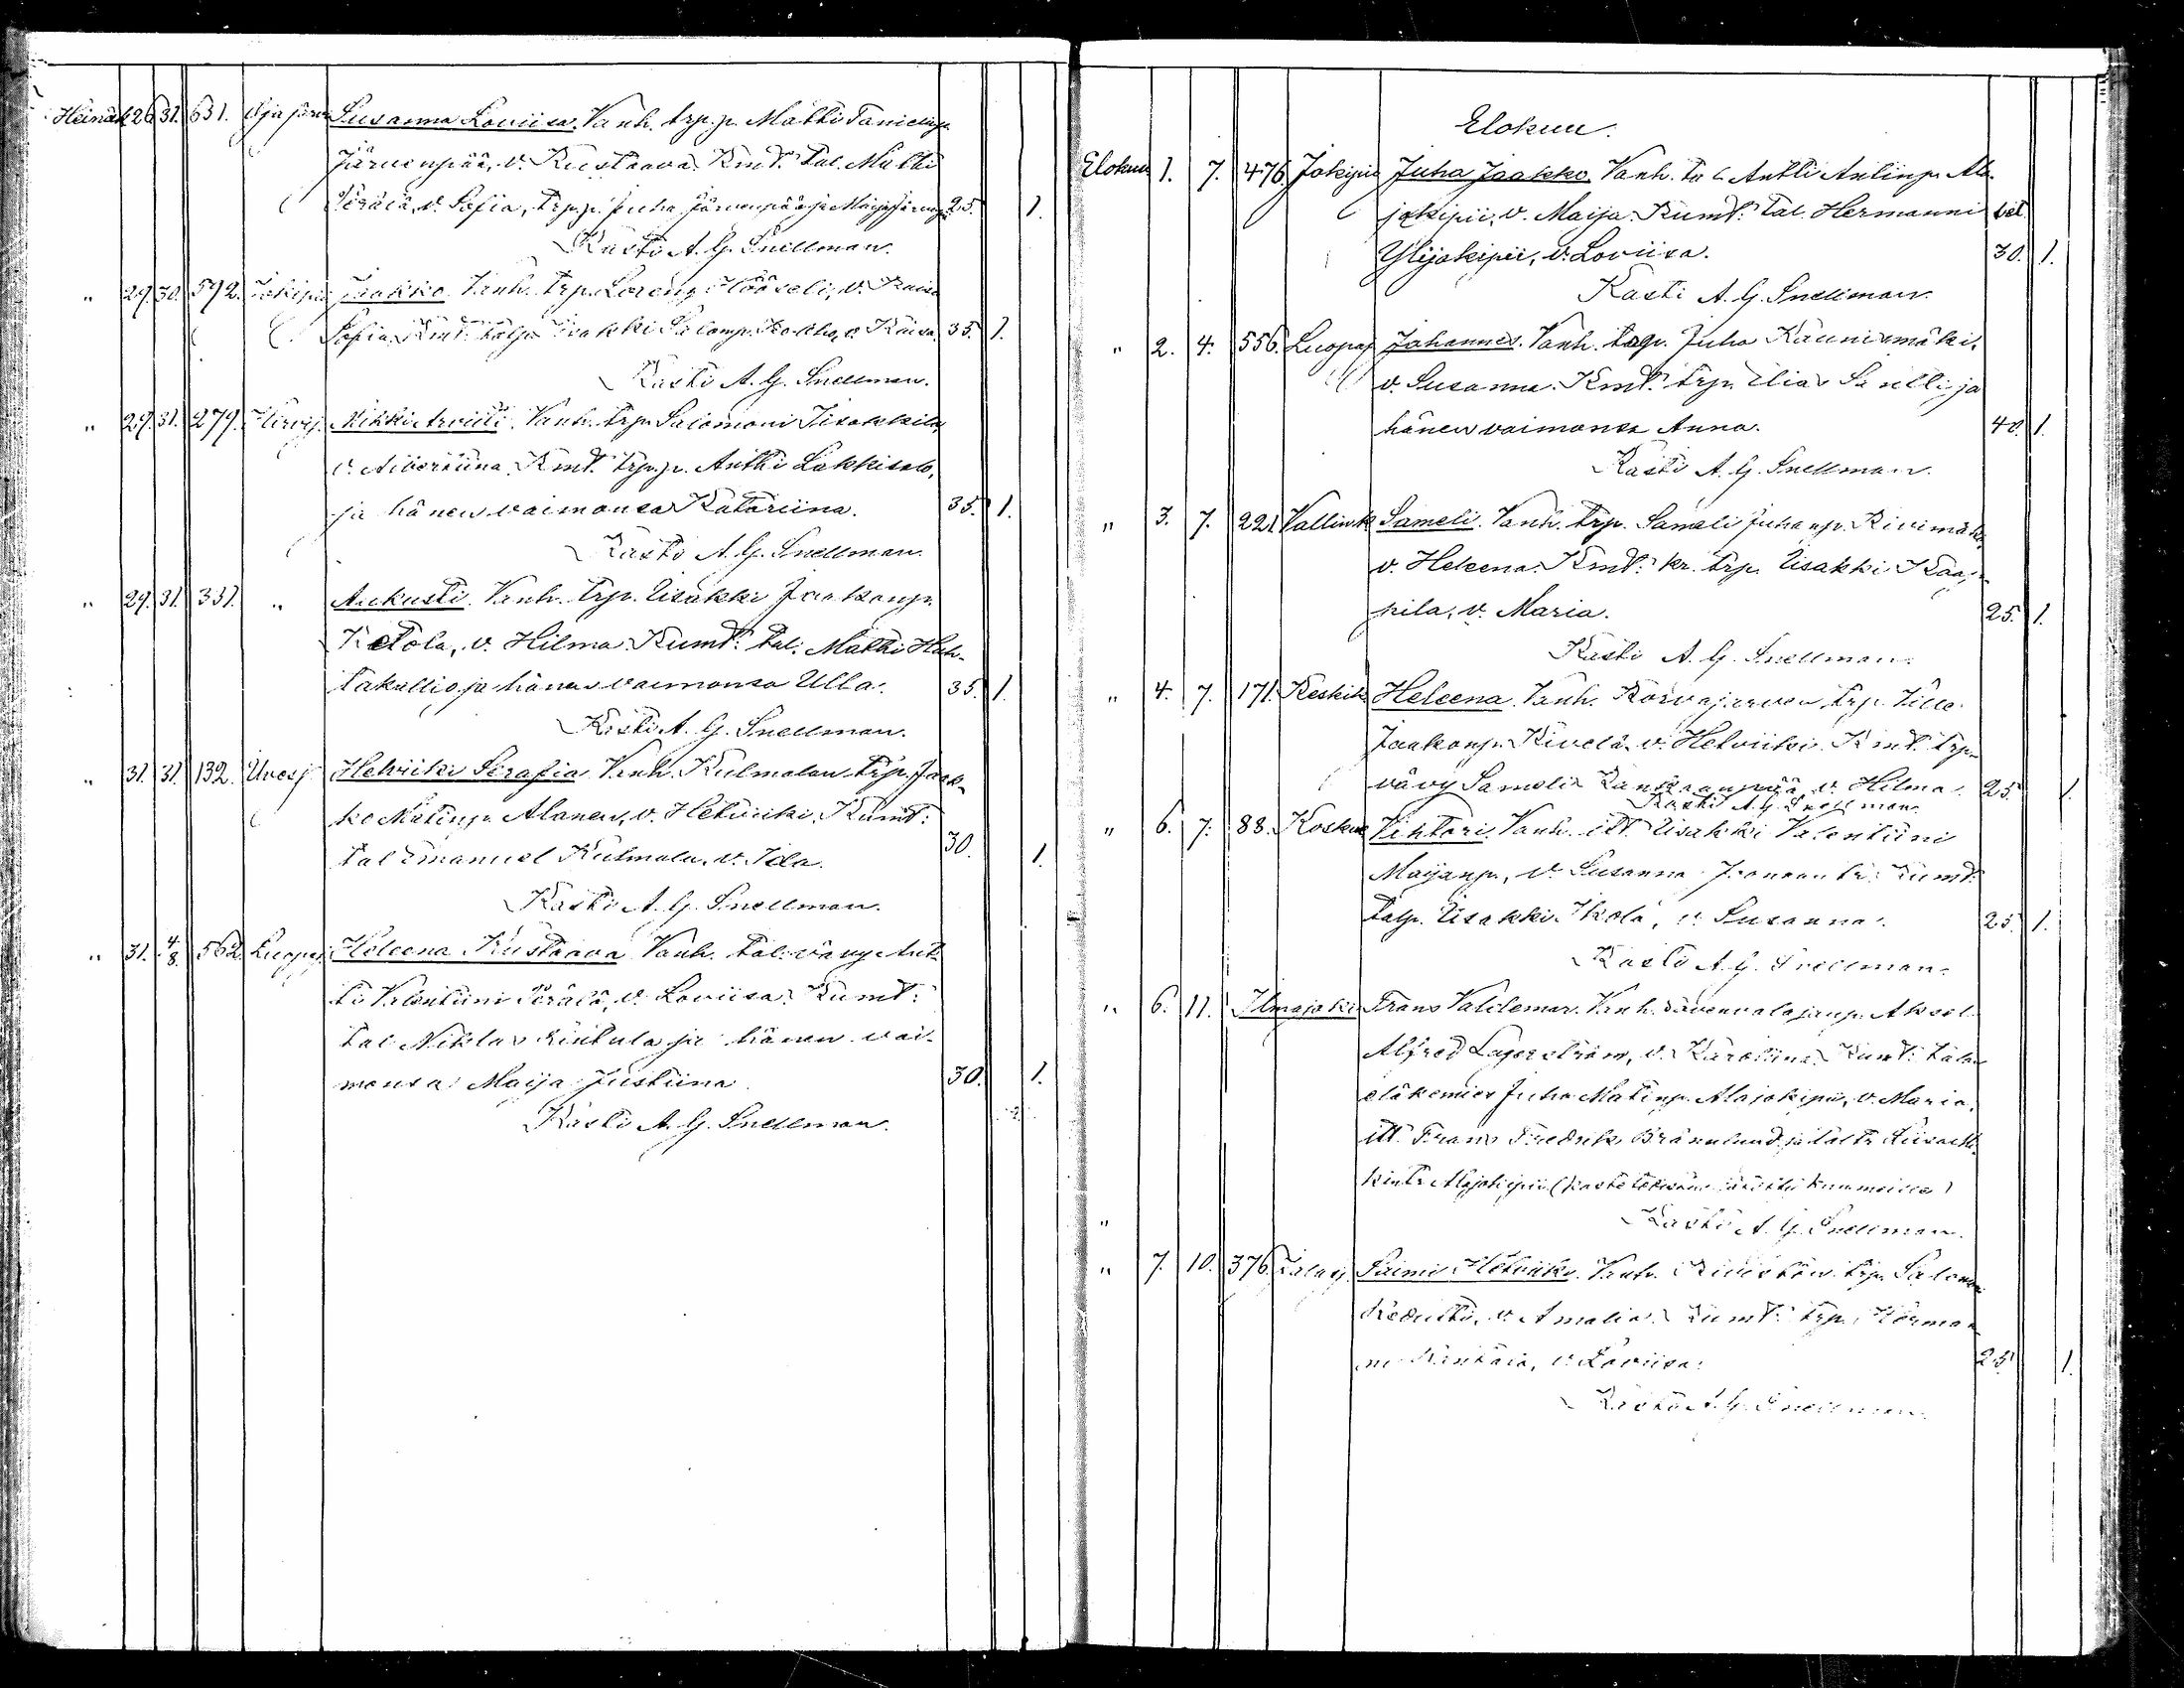 Heinäk. 26. 31. 631. Ojajärvi Susanna Loviisa. Vanh. trp. p. Matti Danielinp.
Järvenpää, v. Kustaava. Kmt: tal. Matti
Perälä, v. Sofia, trp. p. Juha Järvenpää ja Maija 25. 1.
Kasti A. G. Snellman.
" 29. 30. 592. Jokipii Jaakko. Vanh. trp. Loreng v.
Sofia. Kmt: talp. Iisakki Salomp. v. Kaisa. 35. 1.
Kasti A. G. Snellman.
" 29. 31. 279. Hirvij. Nikki Arviiti. Vanh. trp. Salomoni Iisakkila,
v. Albertiina. Kmt: trp. p. Antti Lakkisalo,
ja hänen vaimonsa Katariina. 35. 1.
Kasti A. G. Snellman.
" 29. 31. 331. " Aukusti. Vanh. trp. Iisakki Jaakonp.
Ketola, v. Hilma. Kumt: tal. Matti Huh-
takallio ja hänen vaimonsa Ulla. 35. 1.
Kasti A. G. Snellman.
" 31. 31. 132. Ûresj. Helviiki Serafia. Vanh. Kulmalan trp. Jaak-
ko Matinp. Alanen, v. Helviiki. Kumt:
tal Emanuel Kulmala, v. Ida. 30. 1.
Kasti A. G. Snellman.
" 31. 4/8. 562. Luopaj. Heleena Kustaava. Vanh. tal. vävy Ant-
ti Valentiini Perälä, v. Loviisa. Kumt:
tal. Niklas Rintala ja hänen vai-
monsa Maija Justiina. 30. 1.
Kasti A. G. Snellman.
Elokuu.
Elokuu 1. 7. 476. Jokipii Juha Jaakko. Vanh. tal. Antti Antinp. Ala-
jokipii, v. Maija. Kumt: tal. Hermanni
Ylijokipii, v. Loviisa. 30. 1.
Kasti A. G. Snellman.
" 2. 4. 556. Luopaj. Johannes. Vanh. trp. Juha Kauniamäki,
v. Susanna. Kmt: trp. Elias Santti ja
hänen vaimonsa Anna. 40. 1.
Kasti A. G. Snellman.
" 3. 7. 221. Vallink Sameli. Vanh. trp. Sameli Juhanp. Kivimäki,
v. Heleena. Kmt: kr. trp. Iisakki Kaap-
pila, v. Maria. 25. 1.
Kasti A. G. Snellman.
" 4. 7. 171. Keskik Heleena. Vanh. Korvajarven trp. Ville
Jaakonp. Kivelä, v. Helviiki. Kmt: trp.
vävy Sameli Kankaanpää, v. Hilma. 25. 1.
Kasti A. G. Snellman.
" 6. 7. 88. Koskue Vihtori. Vanh. itt. Iisakki Valentiini
Maijanp., v. Susanna Joonaantr. Kumt:
talp. Iisakki Ikola, v. Susanna. 25. 1.
Kasti A. G. Snellman.
" 6. 11. Ilmajoki Frans Valdemar. Vanh. Aksel
Alfred Lagerström, v. Karoliina. Kumt: talon
eläkemies Juha Matinp. Alajokipii, v. Maria,
itt. Frans Fredrik Brännlund ja
Alajokipii (kastetodistus kummeille)
Kasti A. G. Snellman.
"
" 7. 10. 376. Saimi Helviiki. Vanh. trp. Salomoni
v. Amalia. Kumt: trp. Herman-
ni Rintala, v. Loviisa. 25. 1.
Kasti A. G. Snellman.